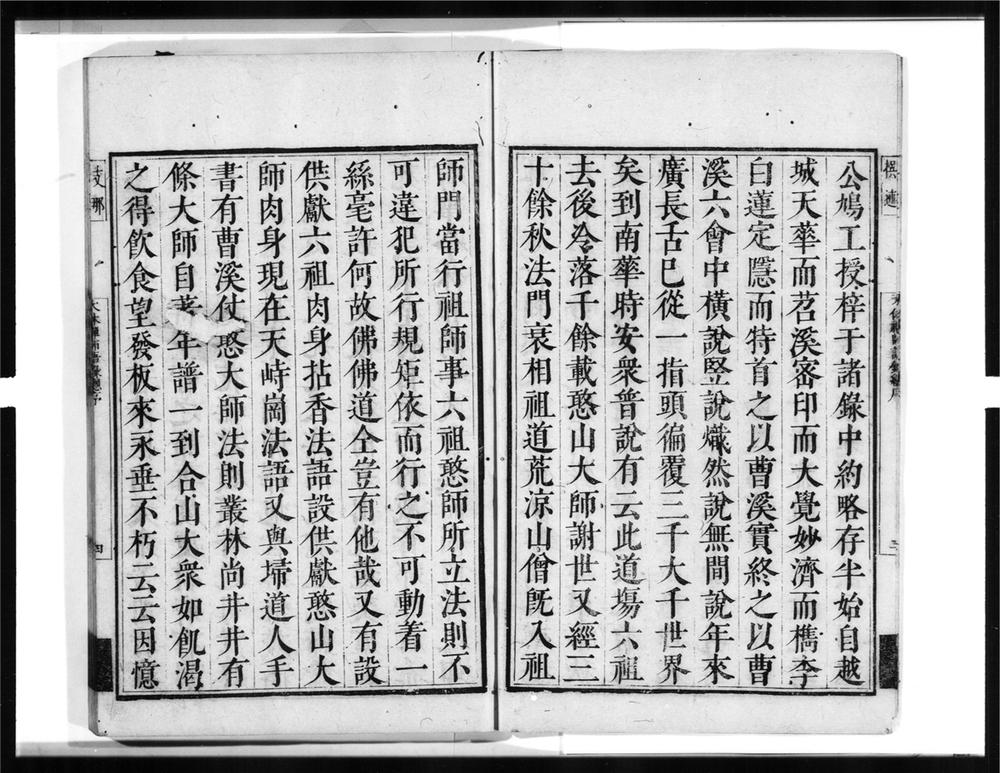 公鳩工授梓于諸錄中約略存半始自越
城天華而苕溪密印而大覺妙濟而檇李
白蓮定隱而特首之以曹溪實終之以曹
溪六會中橫說竪說熾然說無間說年來
廣長舌已從一指頭徧覆三千大千世界
矣到南華時安衆普說有云此道塲六祖
去後冷落千餘載憨山大師謝世又經三
十餘秋法門衰相祖道荒涼山僧旣入祖
師門當行祖師事六祖憨師所立法則不
可違犯所行規矩依而行之不可動着一
絲毫許何故佛佛道仝豈有他哉又有設
供獻六祖肉身拈香法語設供獻憨山大
師肉身現在天峙崗法語又與埽道人手
書有曹溪仗憨大師法則叢林尚井井有
條大師自著年譜一到合山大衆如飢渴
之得飲食望發板來永垂不朽云云因憶
支那
四